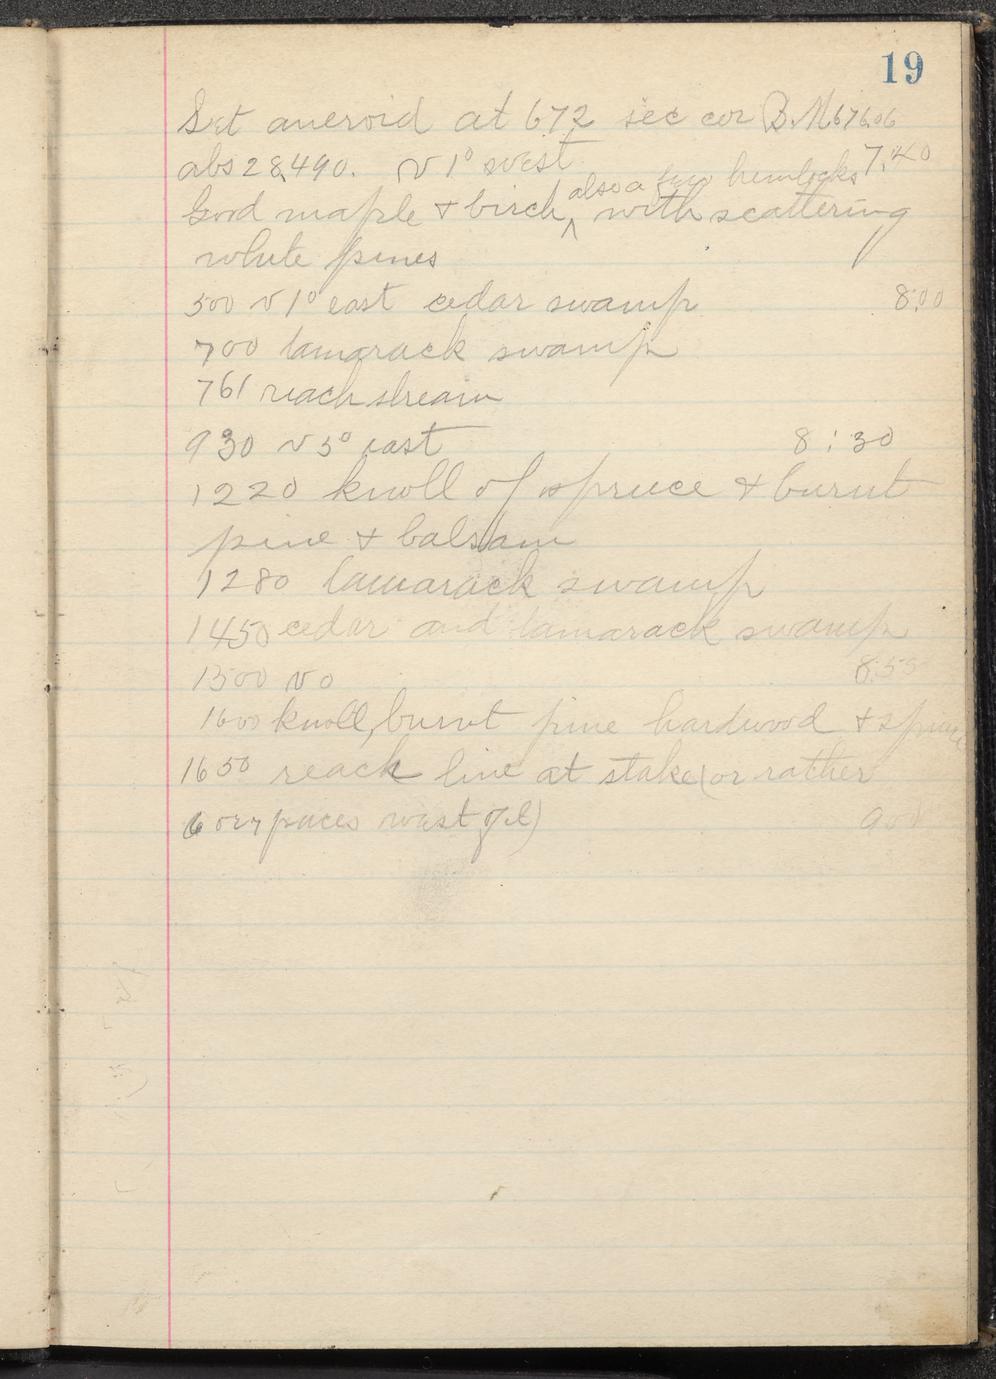 19
Set aneroid at 672 sec cor B.M 676.06
abs 28,490. V 1° west 7.40
also a few hemlocks
Good maple & birch ^ with scattering
white pines
500 V 1° east cedar swamp 8:00
700 tamarack swamp
761 reach stream
930 V 3° east 8:30
1220 knoll of spruce & burnt
pine & balsam
1280 tamarack swamp
1450 cedar and tamarack swamp
1500 V 0 8:55
1600 knoll, burnt pine hardwood & spruce
1650 reach line at stake (or rather
6 or 7 paces west of it)